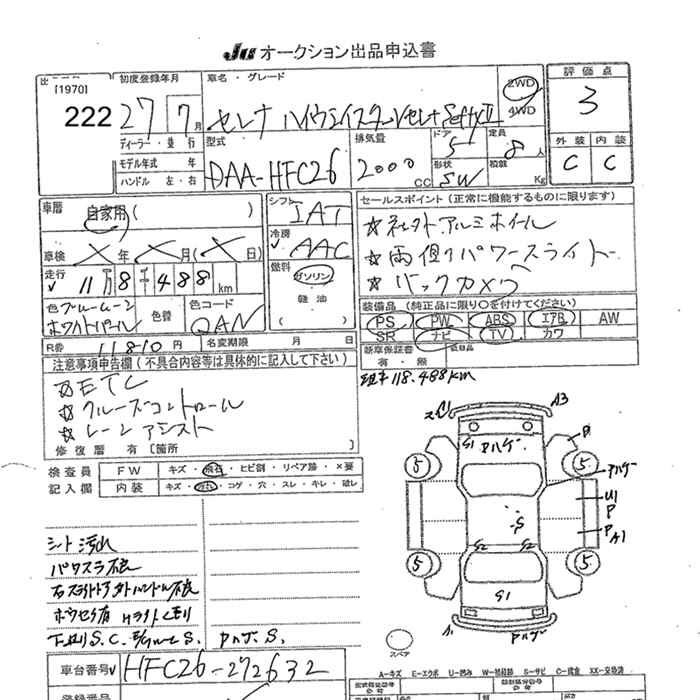 JU オークション出品申込書
[1970]
222
初度登録年月
27年 7月
車名・グレード
セレナ ハイウェイスターVセレナSafetyII
2WD
4WD
評価点
3
ディーラー・並行
モデル年式 年
ハンドル 左・右
型式
DAA-HFC26
排気量
2000 CC
ドア
5
定員
8人
形状
SW
積載
Kg
外装 内装
C C
車歴
自家用 ( )
車検 X年 X月 (X日)
走行
11万8千488 km
色 ブルームーン
ホワイトパール
色替
色コード
QAN
シフト
IAT
冷房
AAC
燃料
ガソリン
軽油
( )
セールスポイント (正常に機能するものに限ります)
☆社外アルミホイール
☆両側パワースライド
☆バックカメラ
装備品 (純正品に限り○を付けてください)
PS PW ABS エアB AW
SR ナビ TV カワ
R券 11810円 名変期限 月 日
新車保証書
有・無
後日品
走行118.488km
注意事項申告欄 (不具合内容等は具体的に記入して下さい)
☆ETC
☆クルーズコントロール
☆レーンアシスト
修復歴 有 〔箇所
検査員
記入欄
FW キズ・飛石・ヒビ割・リペア跡・X要
内装 キズ・汚れ・コゲ・穴・スレ・キレ・破レ
シート汚れ
パワスラ不良
下廻りS.C. アハゲ.S.
A3
S1
アハゲ
P
5
5
アハゲ
U1
P
S
P A1
S2 S2
5
5
S1
アハゲ
スペア
車台番号 HFC26-272632
登録番号
A-キズ E-エクボ U-凹み W-補修跡 S-サビ C-腐食 XX-交換済